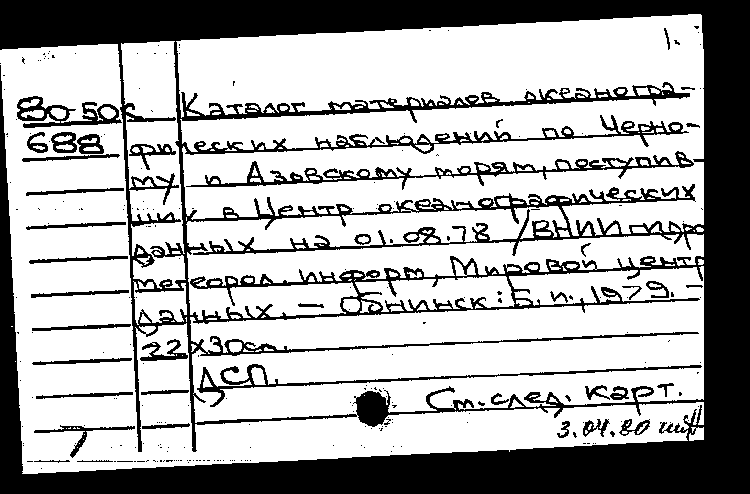 1.
80-50к Каталог материалов океаногра-
688 фических наблюдений по Черно-
му и Азовскому морям, поступив-
ших в Центр океанографических
данных на 01.08.78 / ВНИИ гидро
метеорол. информ, Мировой центр
данных. — Обнинск: Б.и., 1979. -
22х30см.
ДСП.
См. след. карт.
3.04.80